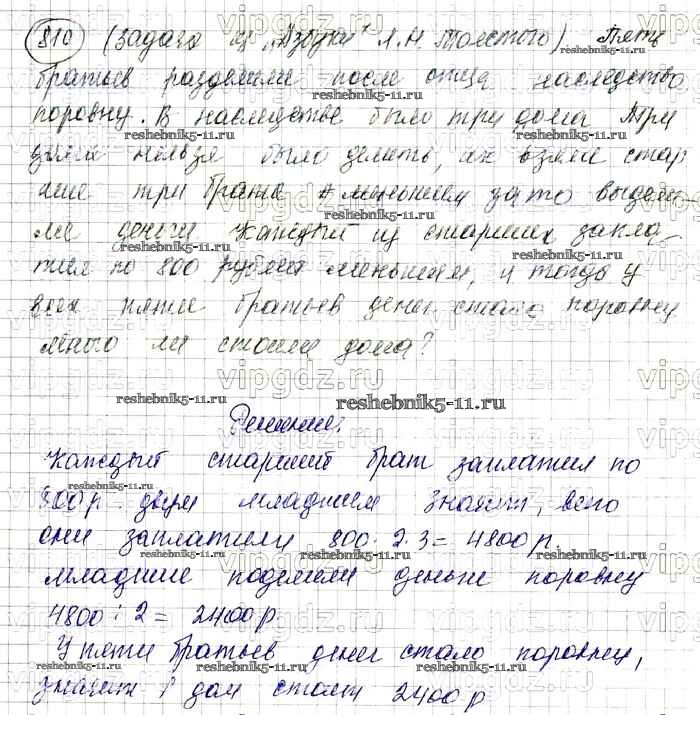 810 (Задача из „Азбуки" Л.Н. Толстого) Пять
братьев разделили после отца наследство
поровну. В наследстве было три дома. Три
дома нельзя было делить, их взяли стар
шие три брата. А меньшим за то выдели
ли деньги. Каждый из старших запла
тил по 800 рублей меньшим, и тогда у
всех пяти братьев денег стало поровну
много ли стоили дома?
Решение.
Каждый старший брат заплатил по
800р двум младшим значит, всего
они заплатили 800 · 2 · 3 = 4800 р.
Младшие поделили деньги поровну
4800 : 2 = 2400 р
У пяти братьев денег стало поровну,
значит 1 дом стоит 2400 р
vipgdz.ru
reshebnik5-11.ru